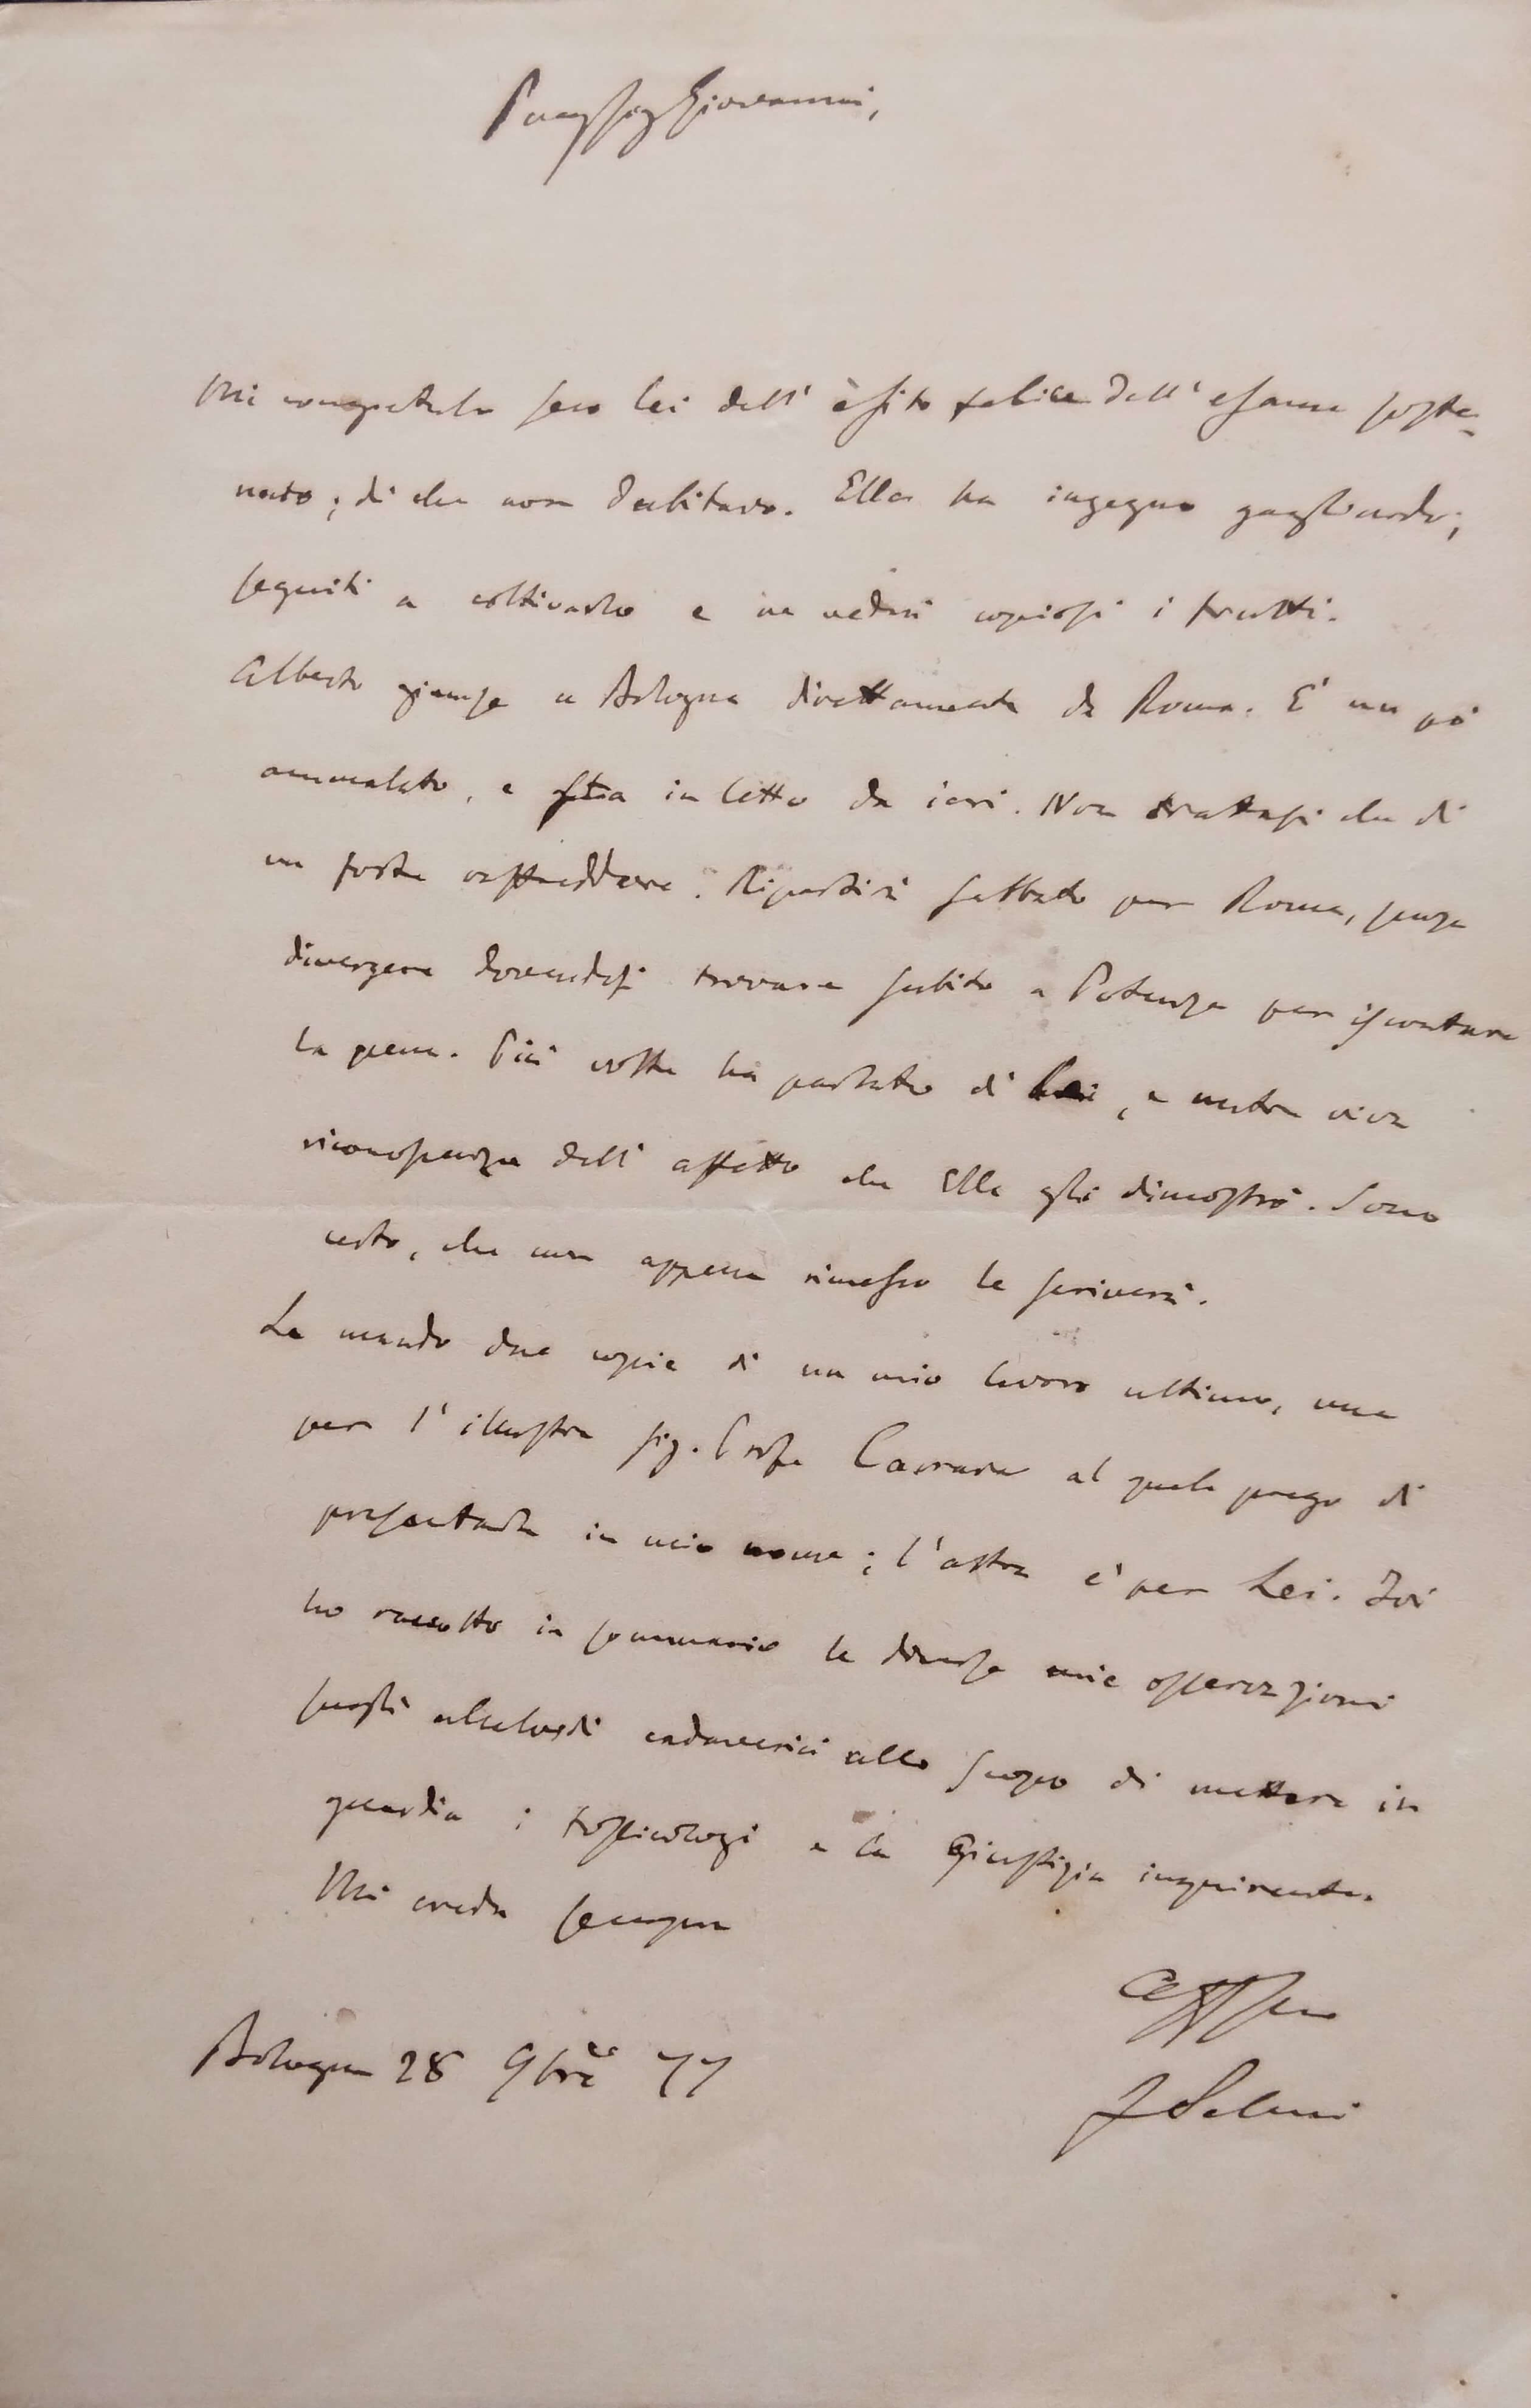 Preg. Sig. Giovanni,
Mi congratulo seco lei dell' èsito felice dell' esame soste-
nuto; di che non dubitavo. Ella ha ingegno gagliardo;
seguiti a coltivarlo e ne vedrà copiosi i frutti.
Alberto giunse a Bologna direttamente da Roma. E' un pò
ammalato, e sta in letto da ieri. Non trattasi che di
un forte raffreddore. Ripartirà sabbato per Roma, senza
divergere dovendosi trovare subito a Potenza per iscontare
la pena. Più volte ha parlato di Lei, e nutre viva
riconoscenza dell' affetto che Ella gli dimostrò. Sono
certo, che non appena rimesso le scriverà.
Le mando due copie di un mio lavoro ultimo, una
per l' illustre sig. Profe Carrara al quale prego di
presentarla in mio nome; l'altra è per Lei. Ivi
ho raccolto in sommario le diverse mie osservazioni
sugli alcaloidi cadaverici allo scopo di mettere in
guardia i tossicologi e la Giustizia inquirente.
Mi creda sempre
Aff Suo
Bologna 28 9bre 77
F Selmi